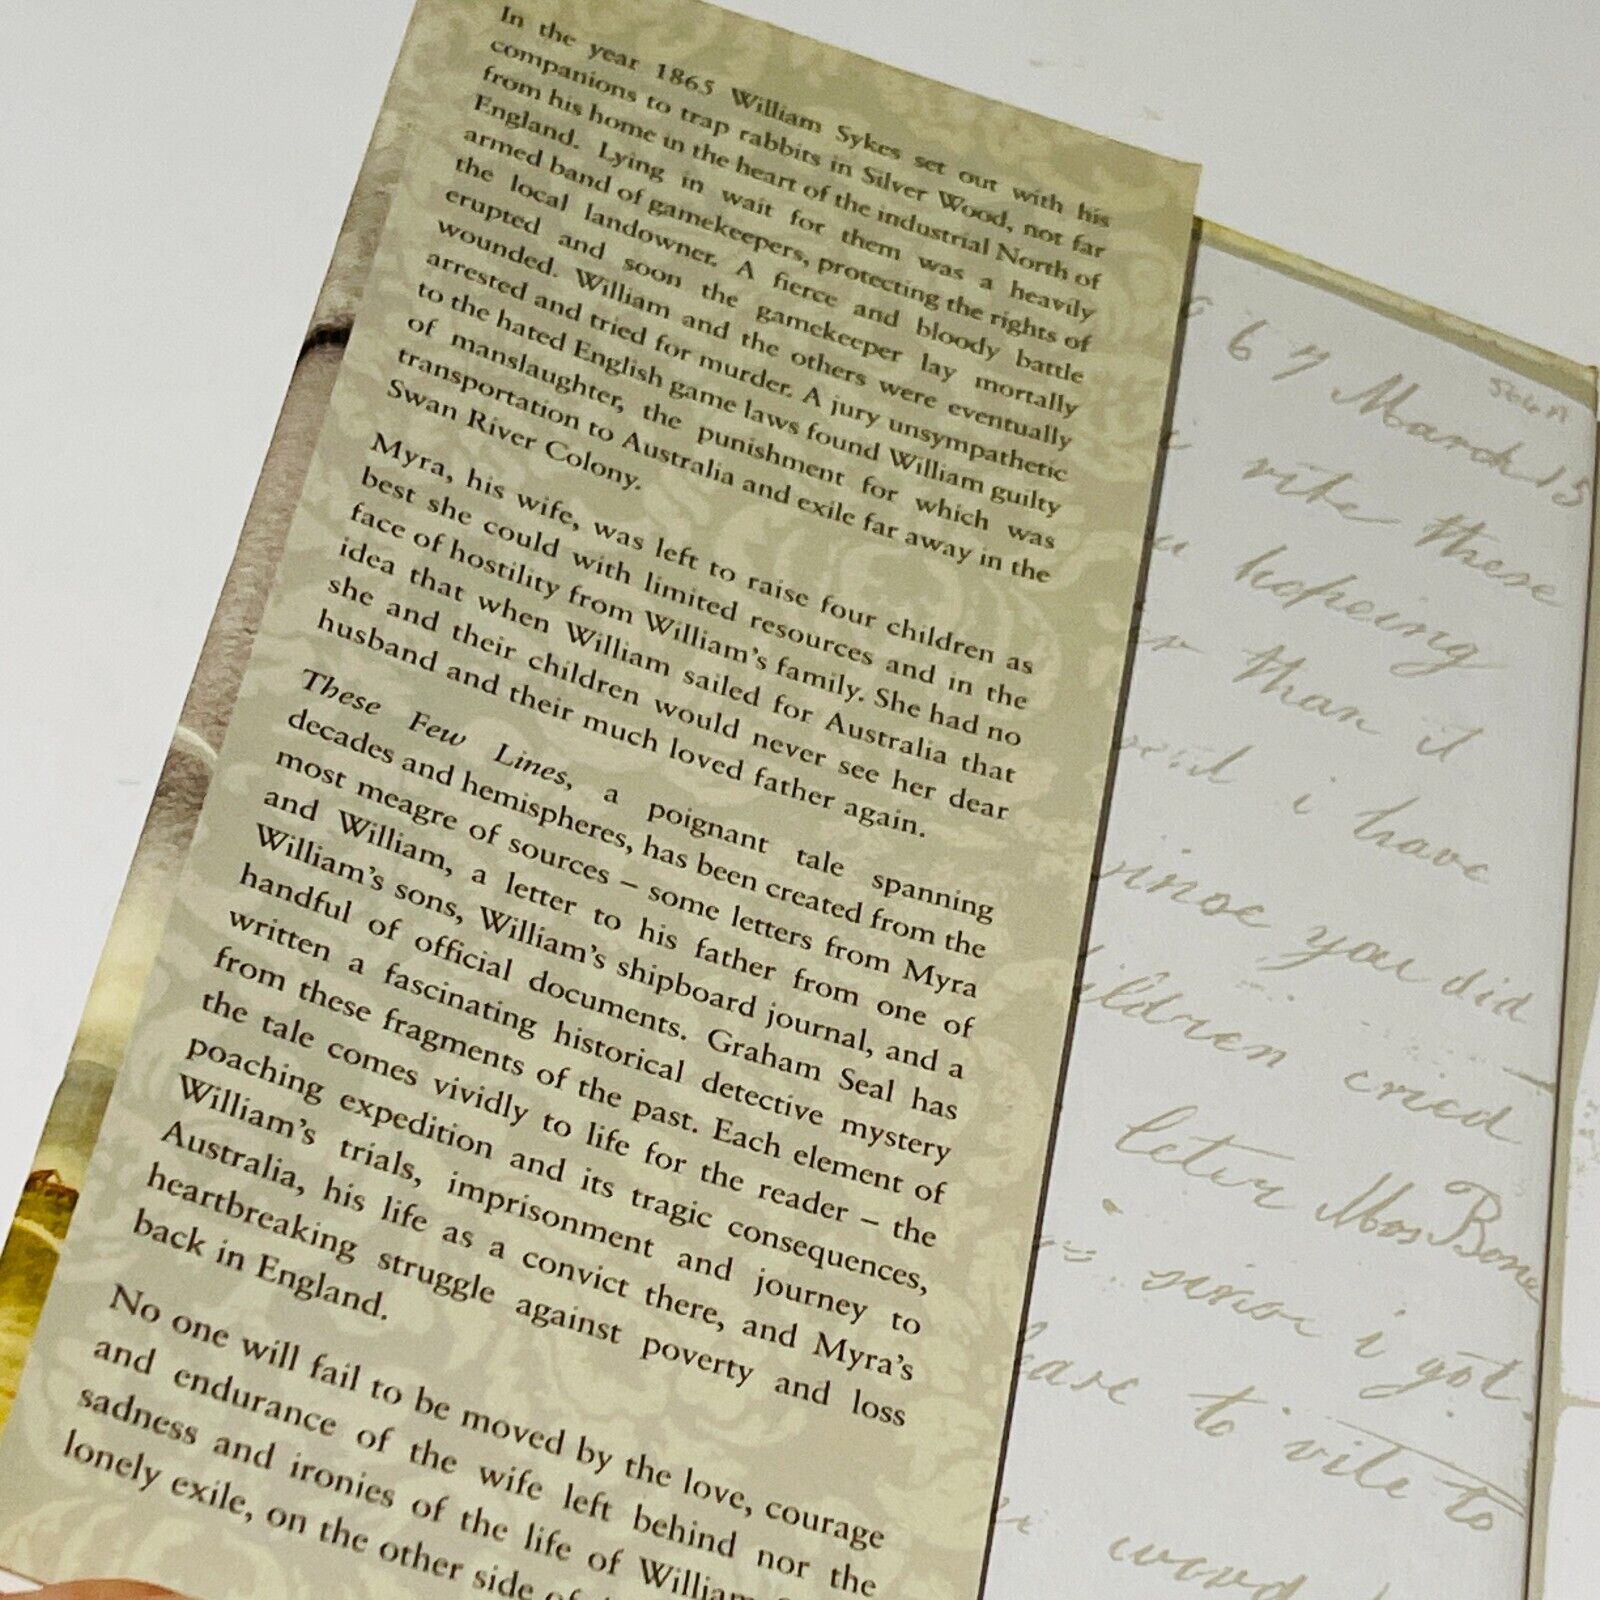 In the year 1865 William Sykes set out with his
companions to trap rabbits in Silver Wood, not far
from his home in the heart of the industrial North of
England. Lying in wait for them was a heavily
armed band of gamekeepers, protecting the rights of
the local landowner. A fierce and bloody battle
erupted and soon the gamekeeper lay mortally
wounded. William and the others were eventually
arrested and tried for murder. A jury unsympathetic
to the hated English game laws found William guilty
of manslaughter, the punishment for which was
transportation to Australia and exile far away in the
Swan River Colony.
Myra, his wife, was left to raise four children as
best she could with limited resources and in the
face of hostility from William's family. She had no
idea that when William sailed for Australia that
she and their children would never see her dear
husband and their much loved father again.
These Few Lines, a poignant tale spanning
decades and hemispheres, has been created from the
most meagre of sources – some letters from Myra
and William, a letter to his father from one of
William's sons, William's shipboard journal, and a
handful of official documents. Graham Seal has
written a fascinating historical detective mystery
from these fragments of the past. Each element of
the tale comes vividly to life for the reader – the
poaching expedition and its tragic consequences,
William's trials, imprisonment and journey to
Australia, his life as a convict there, and Myra's
heartbreaking struggle against poverty and loss
back in England.
No one will fail to be moved by the love, courage
and endurance of the wife left behind nor the
sadness and ironies of the life of William
lonely exile, on the other side of
6 7 March 15
rite these
hopeing
than it
i have
sinse you did
children cried
letter Mrs Bone
sinse i got
please to rite to